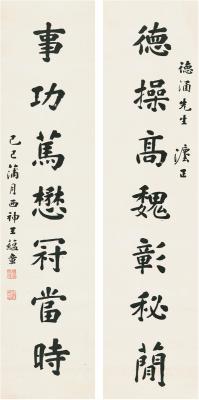 德操高魏彰秘蘭
德涵先生 法正
事功篤懋冠當時
己巳蒲月西神王蘊章